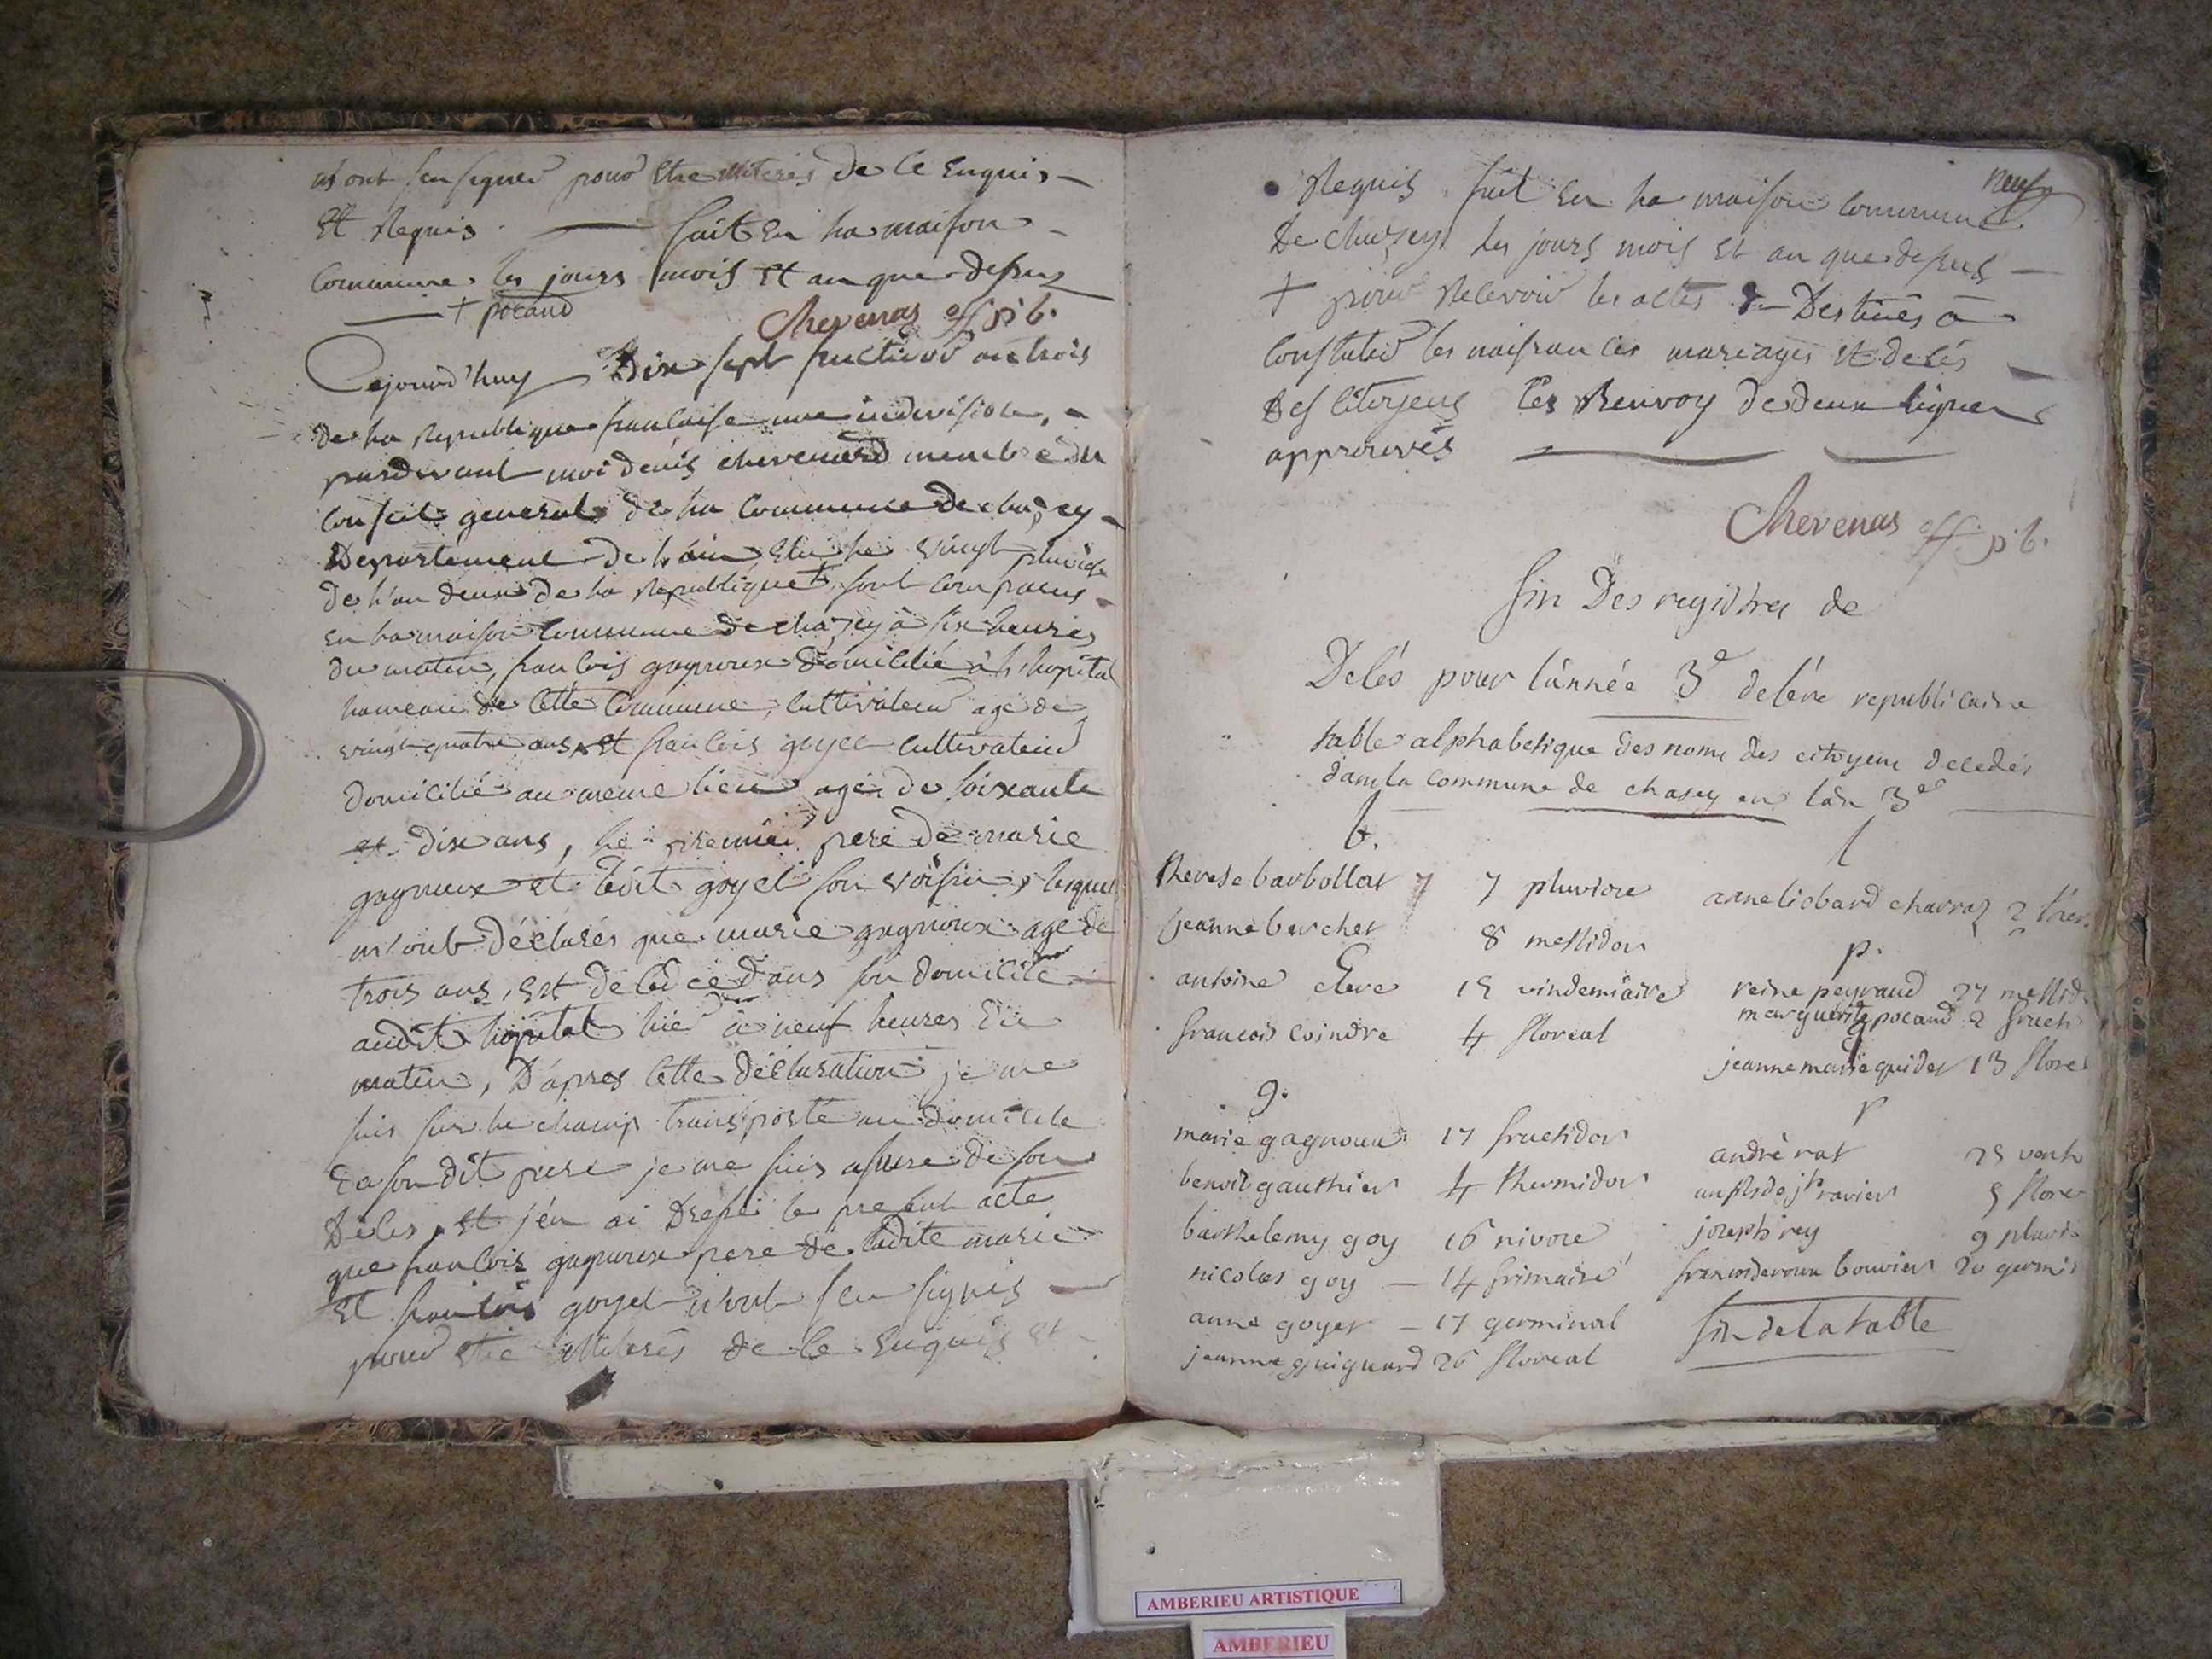 n'ont seu signer pour etre illiterés de ce enquis
et Requis. fait en la maison
Commune les jours mois et an que dessus
+ pocand
Chevenas off. pb.
Cejourd'huy Dix sept fructidor an trois
de la Republique francaise une indivisible,
pardevant moi denis chevenard membre du
Conseil general de la Commune de chazey
Departement de l'ain, elu le vingt pluviose
de l'an deux de la Republique + sont comparus
en la maison Commune de chazey à six heures
du matin, francois gagnoux domicilié à l'hopital
hameau de cette Commune, cultivateur agé de
vingt quatre ans, et francois goyet cultivateur
domicilié au meme lieu agé de soixante
et dix ans, le premier pere de marie
gagnoux et ledit goyet son voisin, lesquel
m'ont déclarés que marie gagnoux age de
trois ans, est decedee dans son domicile
audit hopital hier à neuf heures du
matin, D'apres cette déclaration je me
suis sur le champ transporté au domicile
de son dit pere je me suis assure de son
Decés, et j'en ai Dressé le present acte
que francois gagnoux pere de ladite marie
et francois goyet n'ont seu signés
pour etre illiterés de ce enquis et
neuf
Requis. fait en la maison commune
De chazey les jours mois et an que dessus
+ pour Recevoir les actes Destinés à
Constater les naissances mariages et decés
des Citoyens les Renvoy de deux lignes
approuvés
Chevenas off. pb.
fin Des registres de
Decés pour l'année 3e de l'ére republicaine
table alphabetique des noms des citoyens decedés
dans la commune de chasey en l'an 3e
b.
therese barbollat 7 7 pluviose
jeanne berchet 8 messidor
c
antoine cleve 15 vindemiaire
francois coindre 4 floreal
g.
marie gagnoux 17 fructidor
benoit gauthier 4 thermidor
barthelemy goy 16 nivose
nicolas goy — 14 frimaire
anne goyet — 17 germinal
jeanne guignard 26 floreal
l
anne liobard charraz 2 ther.
p.
reine peyraud 27 messid
marguerite pocand 2 fruct
q
jeanne marie quidet 13 flore
r
andré rat 25 vent
un fils de jh ravier 5 flore
joseph rey 9 pluvi
francois bouvier 20 germi
fin de la table
AMBERIEU ARTISTIQUE
AMBERIEU